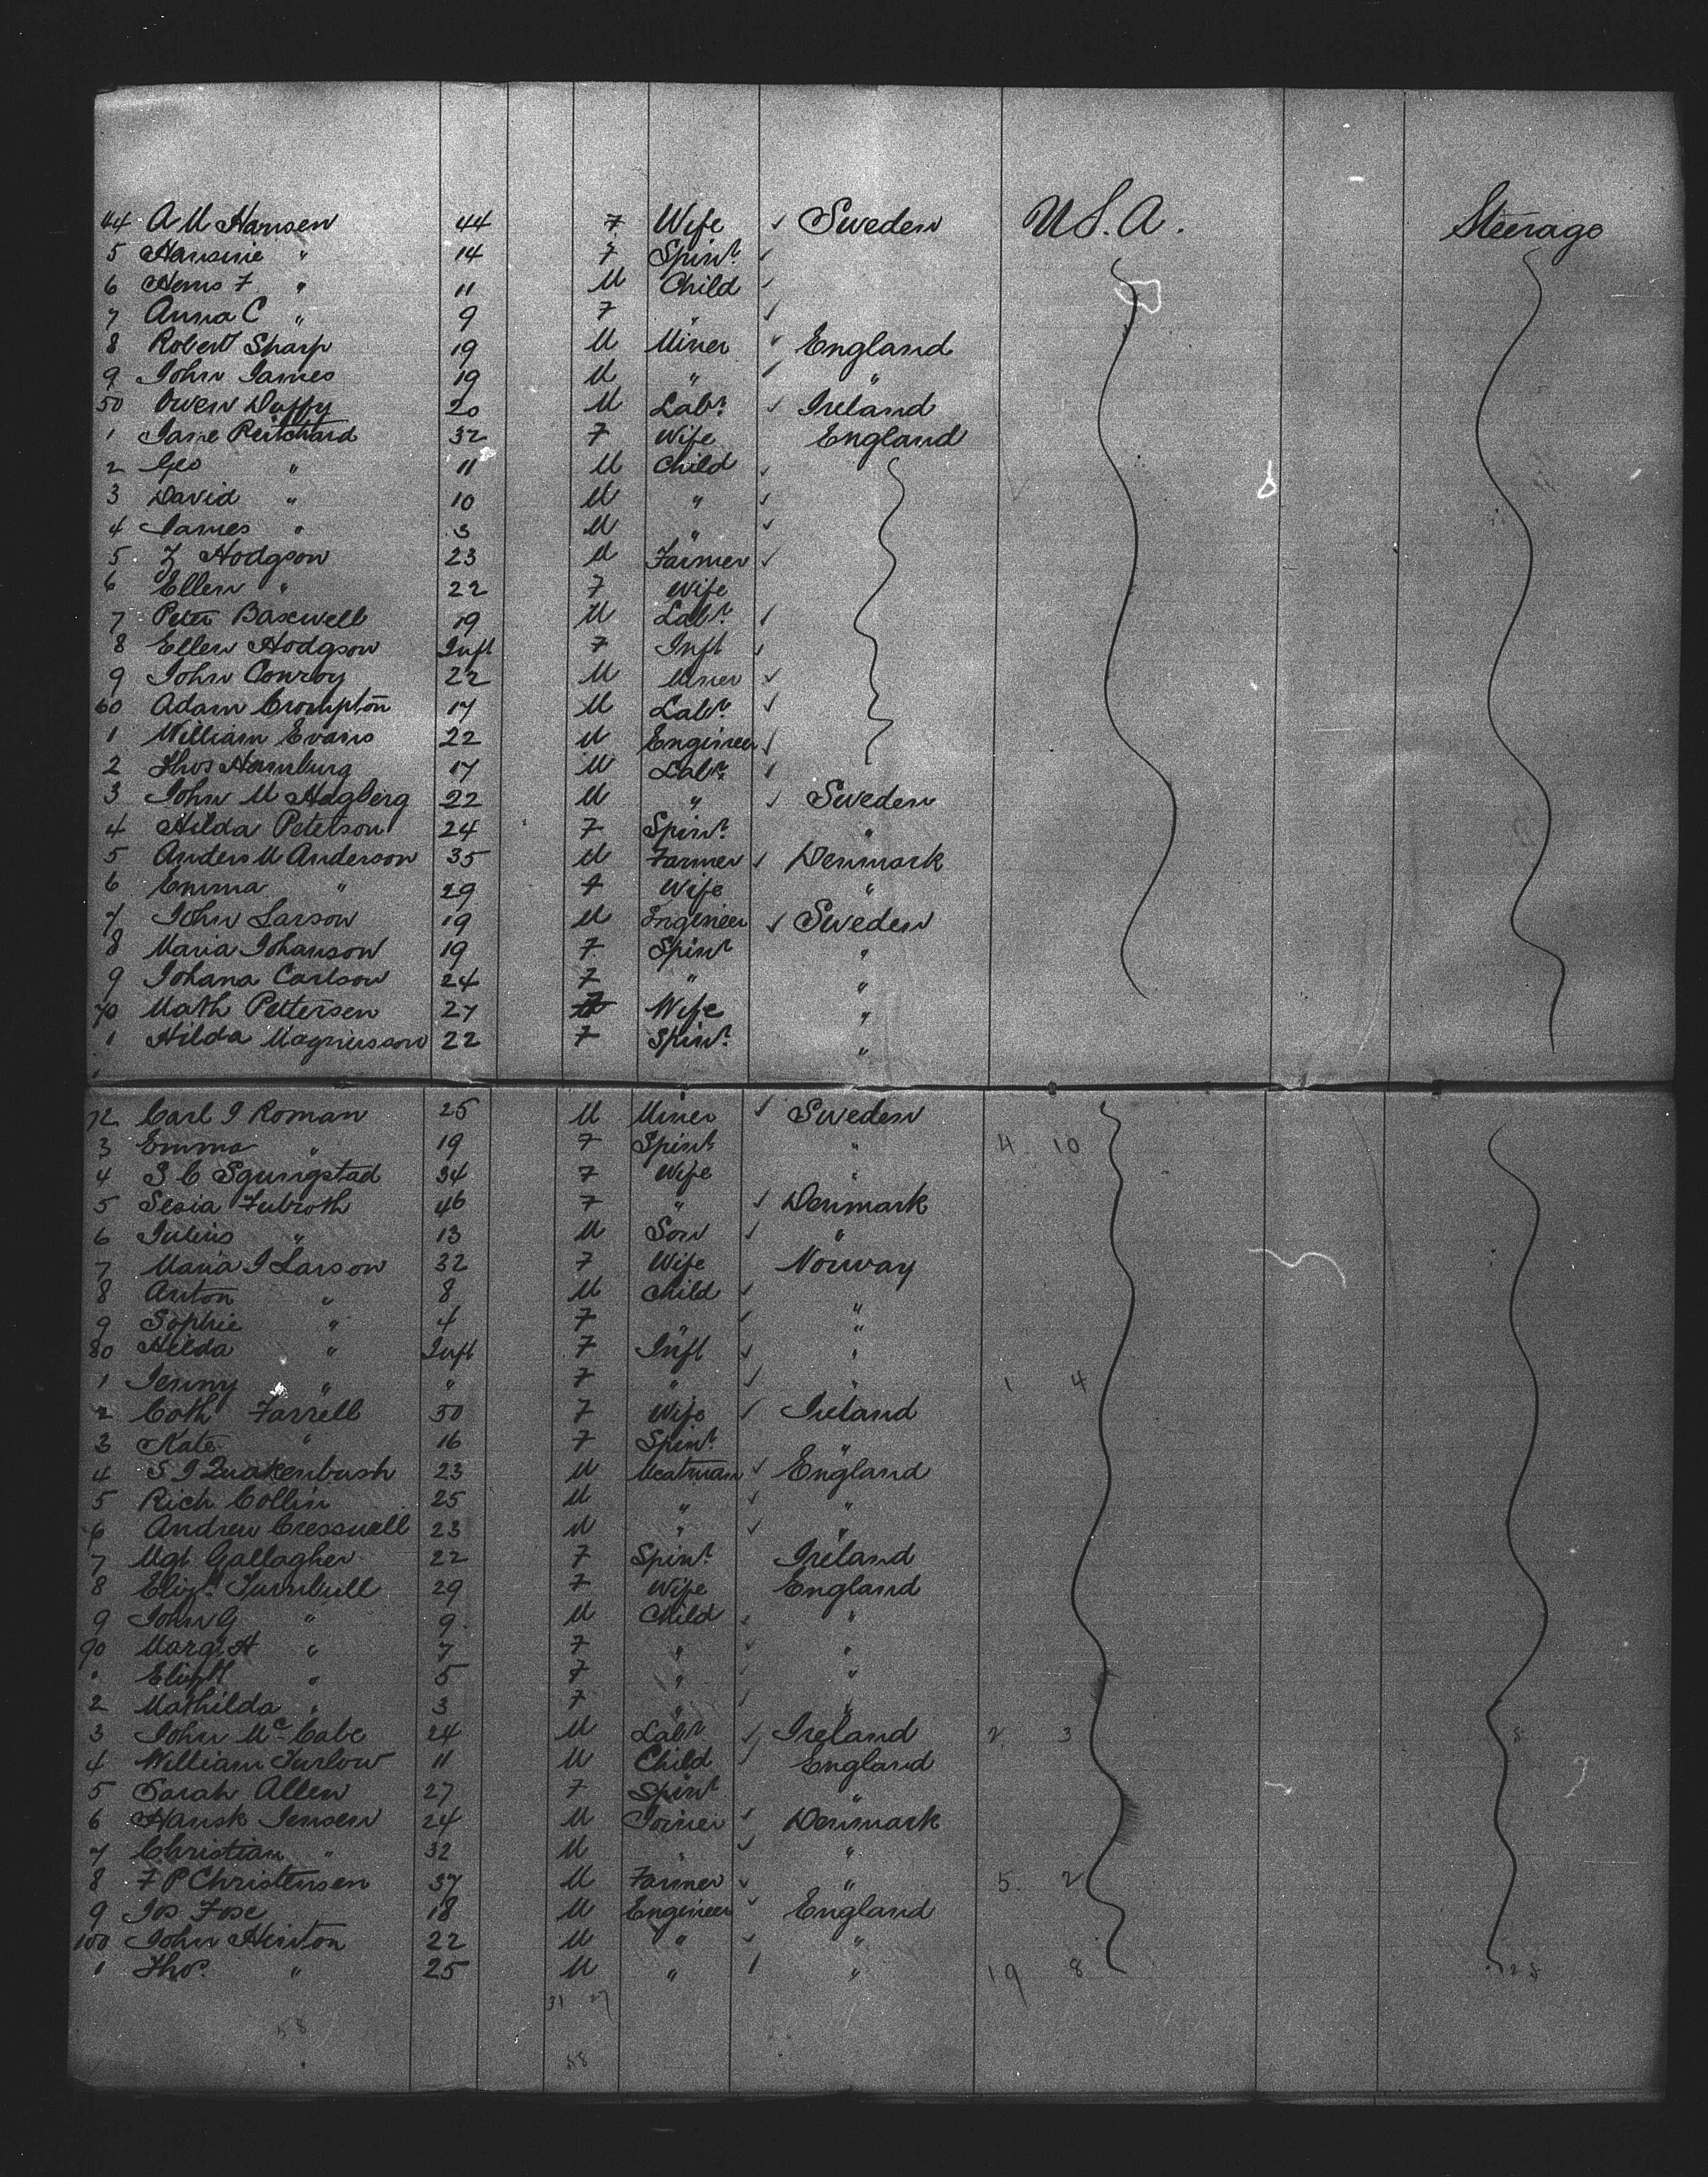 44 A M Hansen 44 F Wife ✓ Sweden U.S.A. Steerage
5 Hansine " 14 F Spinr ✓
6 Hans F " 11 M Child ✓
7 Anna C " 9 F " ✓
8 Robert Sharp 19 M Miner ✓ England
9 John James 19 M " ✓ "
50 Owen Duffy 20 M Labr ✓ Ireland
1 Jane Pritchard 32 F Wife England
2 Geo " 11 M Child ✓
3 David " 10 M " ✓
4 James " 3 M " ✓
5 Z Hodgson 23 M Farmer ✓
6 Ellen " 22 F Wife
7 Peter Baxwell 19 M Labr ✓
8 Ellen Hodgson Inft F Inft ✓
9 John Conroy 22 M Miner ✓
60 Adam Crompton 17 M Labr ✓
1 William Evans 22 M Engineer ✓
2 Thos 17 M Labr ✓
3 John M Hagberg 22 M " ✓ Sweden
4 Hilda Peterson 24 F Spinr "
5 Anders M Anderson 35 M Farmer ✓ Denmark
6 Emma " 29 F Wife "
7 John Larson 19 M Engineer ✓ Sweden
8 Maria Johanson 19 F Spinr "
9 Johana Carlson 24 F " "
70 Math Pettersen 27 F Wife "
1 Hilda Magnusson 22 F Spinr "
72 Carl J Roman 25 M Miner ✓ Sweden
3 Emma " 19 F Spinr " 4 10
4 S C 34 F Wife "
5 46 F " ✓ Denmark
6 Julius " 13 M Son ✓ "
7 Maria J Larson 32 F Wife Norway
8 Anton " 8 M Child ✓ "
9 Sophie " 4 F " ✓ "
80 Hilda " Inft F Inft ✓ "
1 Jenny " " F " ✓ " 1 4
2 Cath Farrell 50 F Wife ✓ Ireland
3 Kate " 16 F Spinr "
4 S J Quakenbush 23 M Meatman ✓ England
5 Rich Collin 25 M " ✓ "
6 Andrew Cresswell 23 M " ✓ "
7 Mgt Gallagher 22 F Spinr Ireland
8 Elizth Turnbull 29 F Wife England
9 John G " 9 M Child ✓ "
90 Margt H " 7 F " ✓ "
" Elizth " 5 F " ✓ "
2 Mathilda " 3 F " ✓ "
3 John McCabe 24 M Labr ✓ Ireland 2 3 8
4 William Turlow 11 M Child ✓ England
5 Sarah Allen 27 F Spinr "
6 Hansk Jensen 24 M Joiner ✓ Denmark
7 Christian " 32 M " ✓ "
8 F P Christensen 37 M Farmer ✓ " 5 2
9 Jos Fose 18 M Engineer ✓ England
100 John Hinton 22 M " ✓ "
1 Thos " 25 M " ✓ " 19 8
31 27
58
58